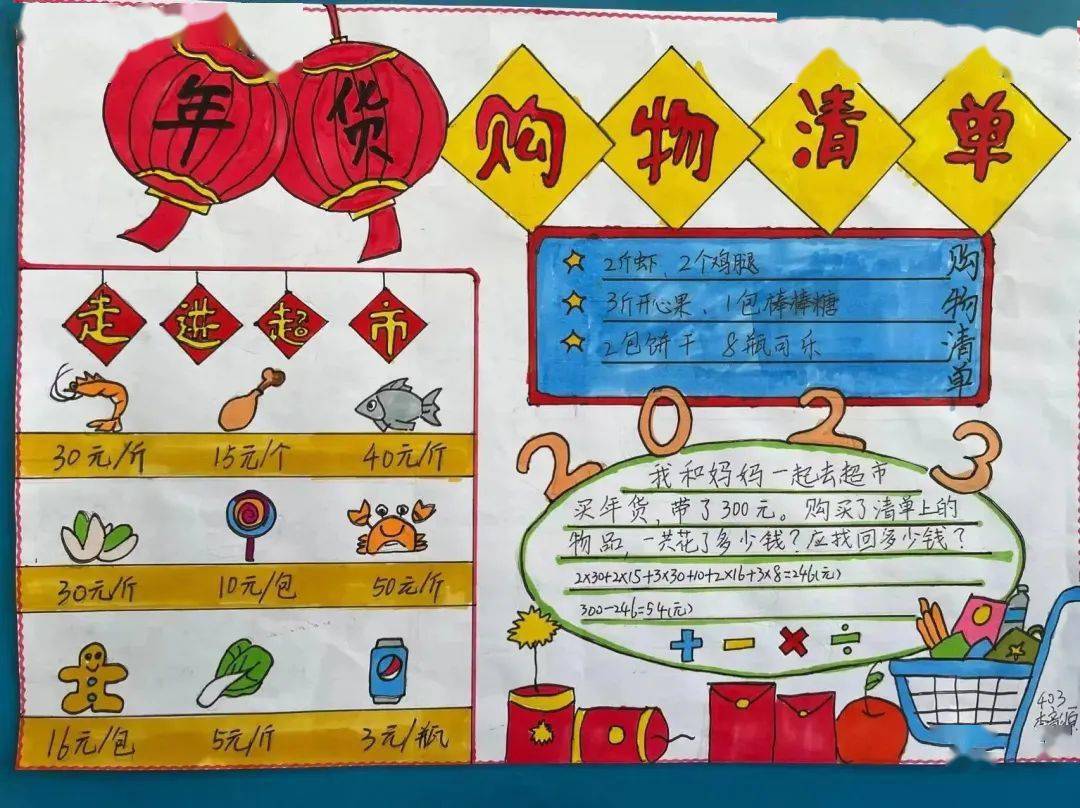 年货
购物清单
走进超市
30元/斤 15元/个 40元/斤
30元/斤 10元/包 50元/斤
16元/包 5元/斤 3元/瓶
购物清单
2斤虾、2个鸡腿
3斤开心果、1包棒棒糖
2包饼干 8瓶可乐
2023
我和妈妈一起去超市
买年货,带了300元。购买了清单上的
物品,一共花了多少钱?应找回多少钱?
2×30+2×15+3×30+10+2×16+3×8=246(元)
300-246=54(元)
+ - × ÷
403